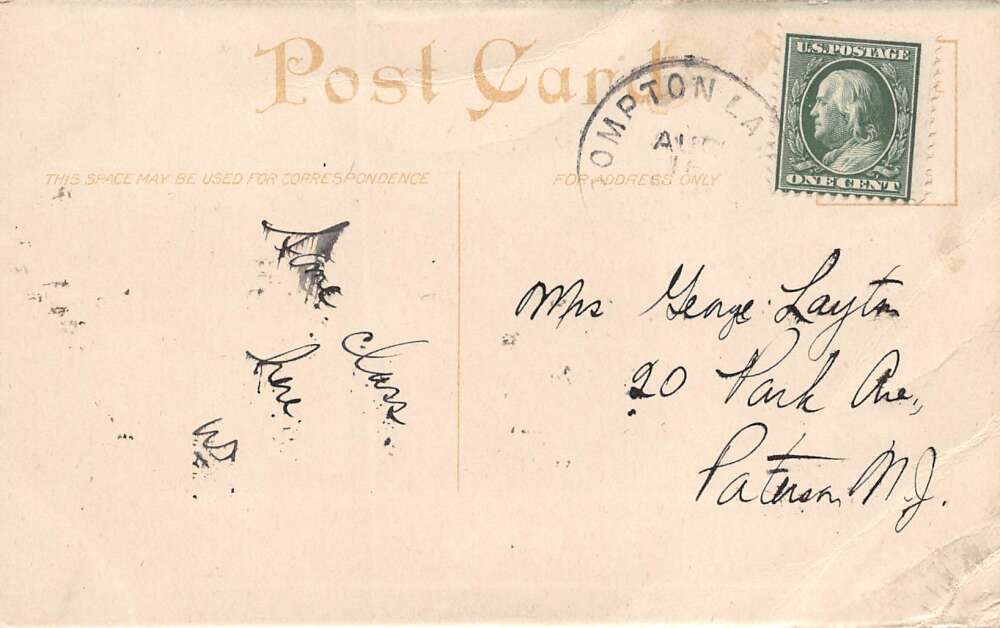 Post Card
OMPTON LA
AUG
U.S. POSTAGE
ONE CENT
THIS SPACE MAY BE USED FOR CORRESPONDENCE
FOR ADDRESS ONLY
class
here
Mrs George Layton
20 Park Ave,
Paterson N.J.